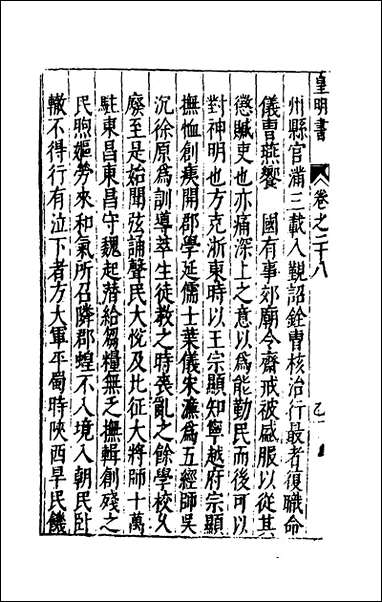 皇明書
卷之二十八
州縣官滿三載入覲詔銓曹核治行最者復職命
儀曹燕饗 國有事郊廟令齋戒被盛服以從其
懲贓吏也亦痛深上之意以為能勤民而後可以
對神明也方克浙東時以王宗顯知寧越府宗顯
撫恤創痍開郡學延儒士葉儀宋濂為五經師吳
沉徐原為訓導萃生徒教之時喪亂之餘學校久
廢至是始聞弦誦聲民大悅及比征大將師十萬
駐東昌東昌守魏起潛給芻糧無乏撫輯創殘之
民煦嫗勞來和氣所召隣郡蝗不入境入朝民臥
轍不得行有泣下者方大軍平蜀時陝西旱民饑